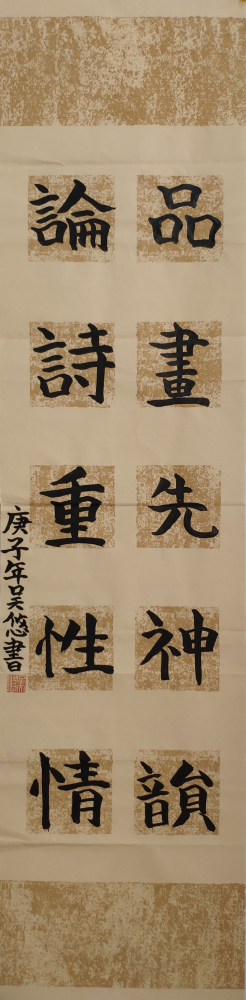 品畫先神韻
論詩重性情
庚子年吴悠書